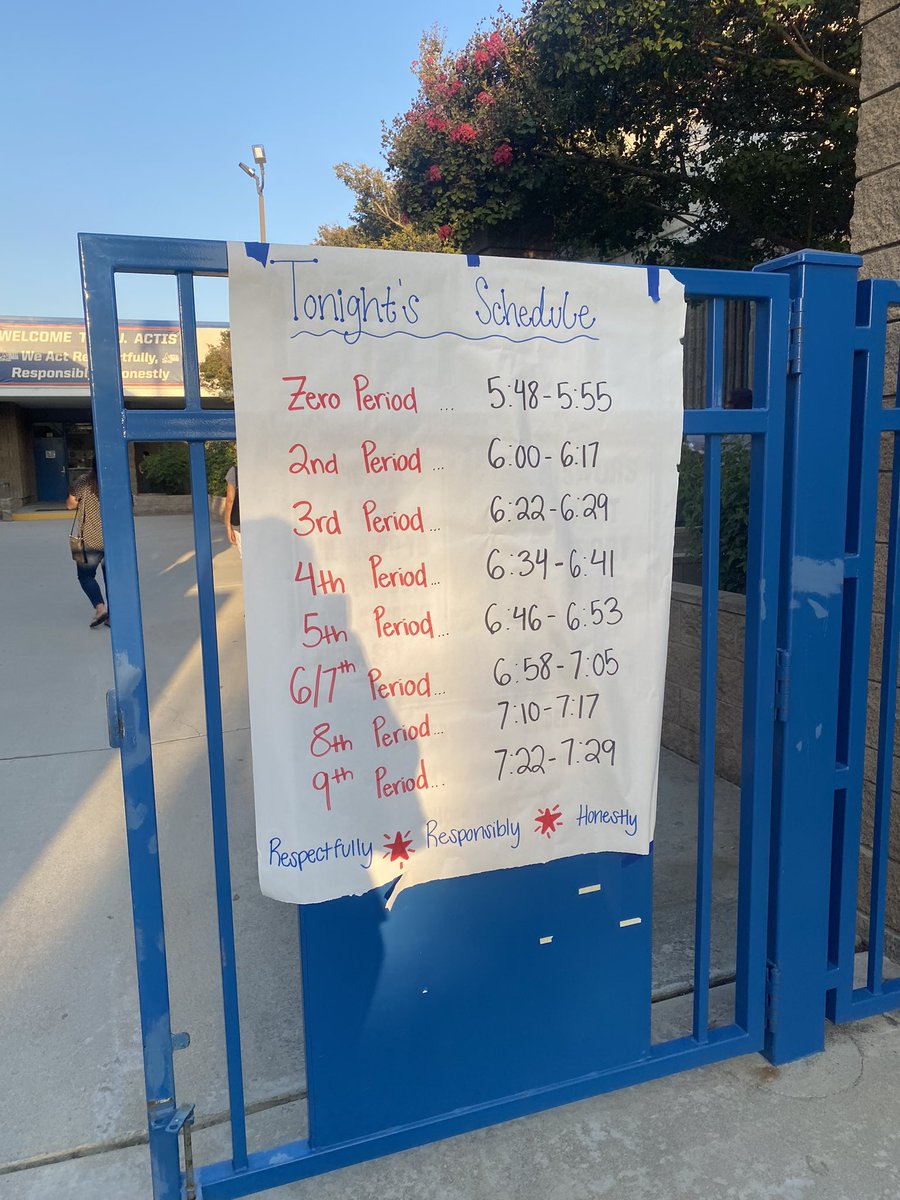 WELCOME T J. ACTIS
We Act Re ctfully,
Responsibl onestly
Tonight's Schedule
Zero Period ... 5:48-5:55
2nd Period... 6:00-6:17
3rd Period... 6:22-6:29
4th Period... 6:34-6:41
5th Period... 6:46-6:53
6/7th Period... 6:58-7:05
8th Period... 7:10-7:17
9th Period... 7:22-7:29
Respectfully Responsibly Honestly